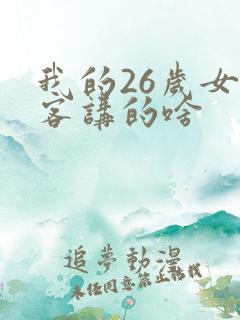 我的26歲女
客講的啥
追夢動漫
未經同意禁止轉載